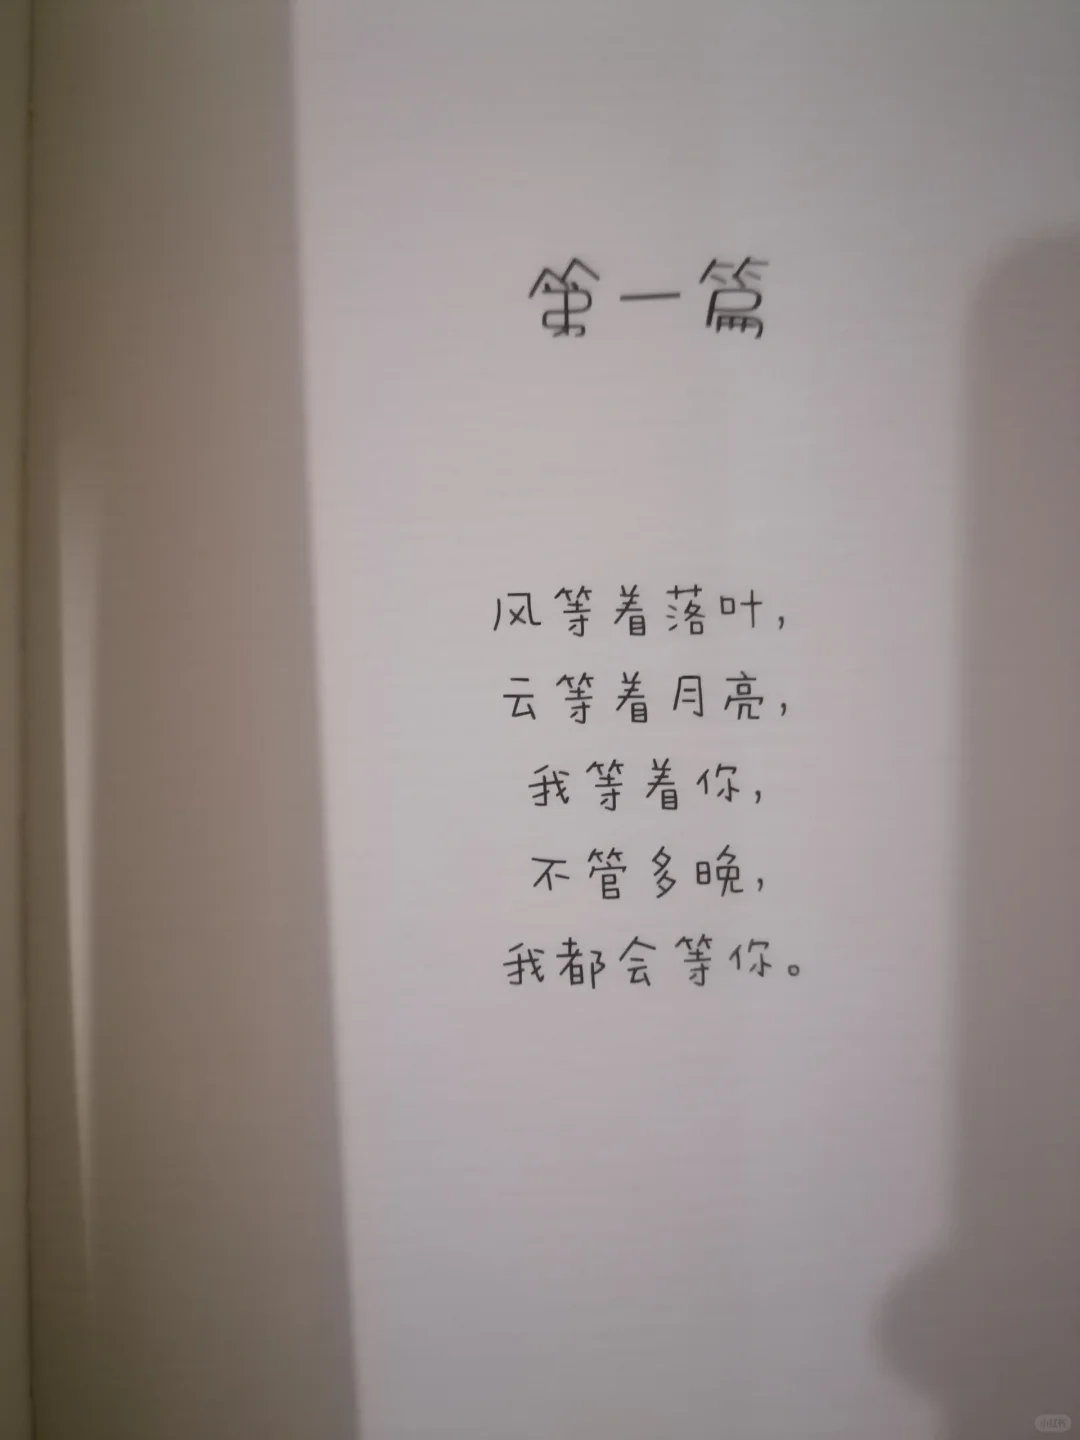 第一篇
风等着落叶，
云等着月亮，
我等着你，
不管多晚，
我都会等你。
小红书